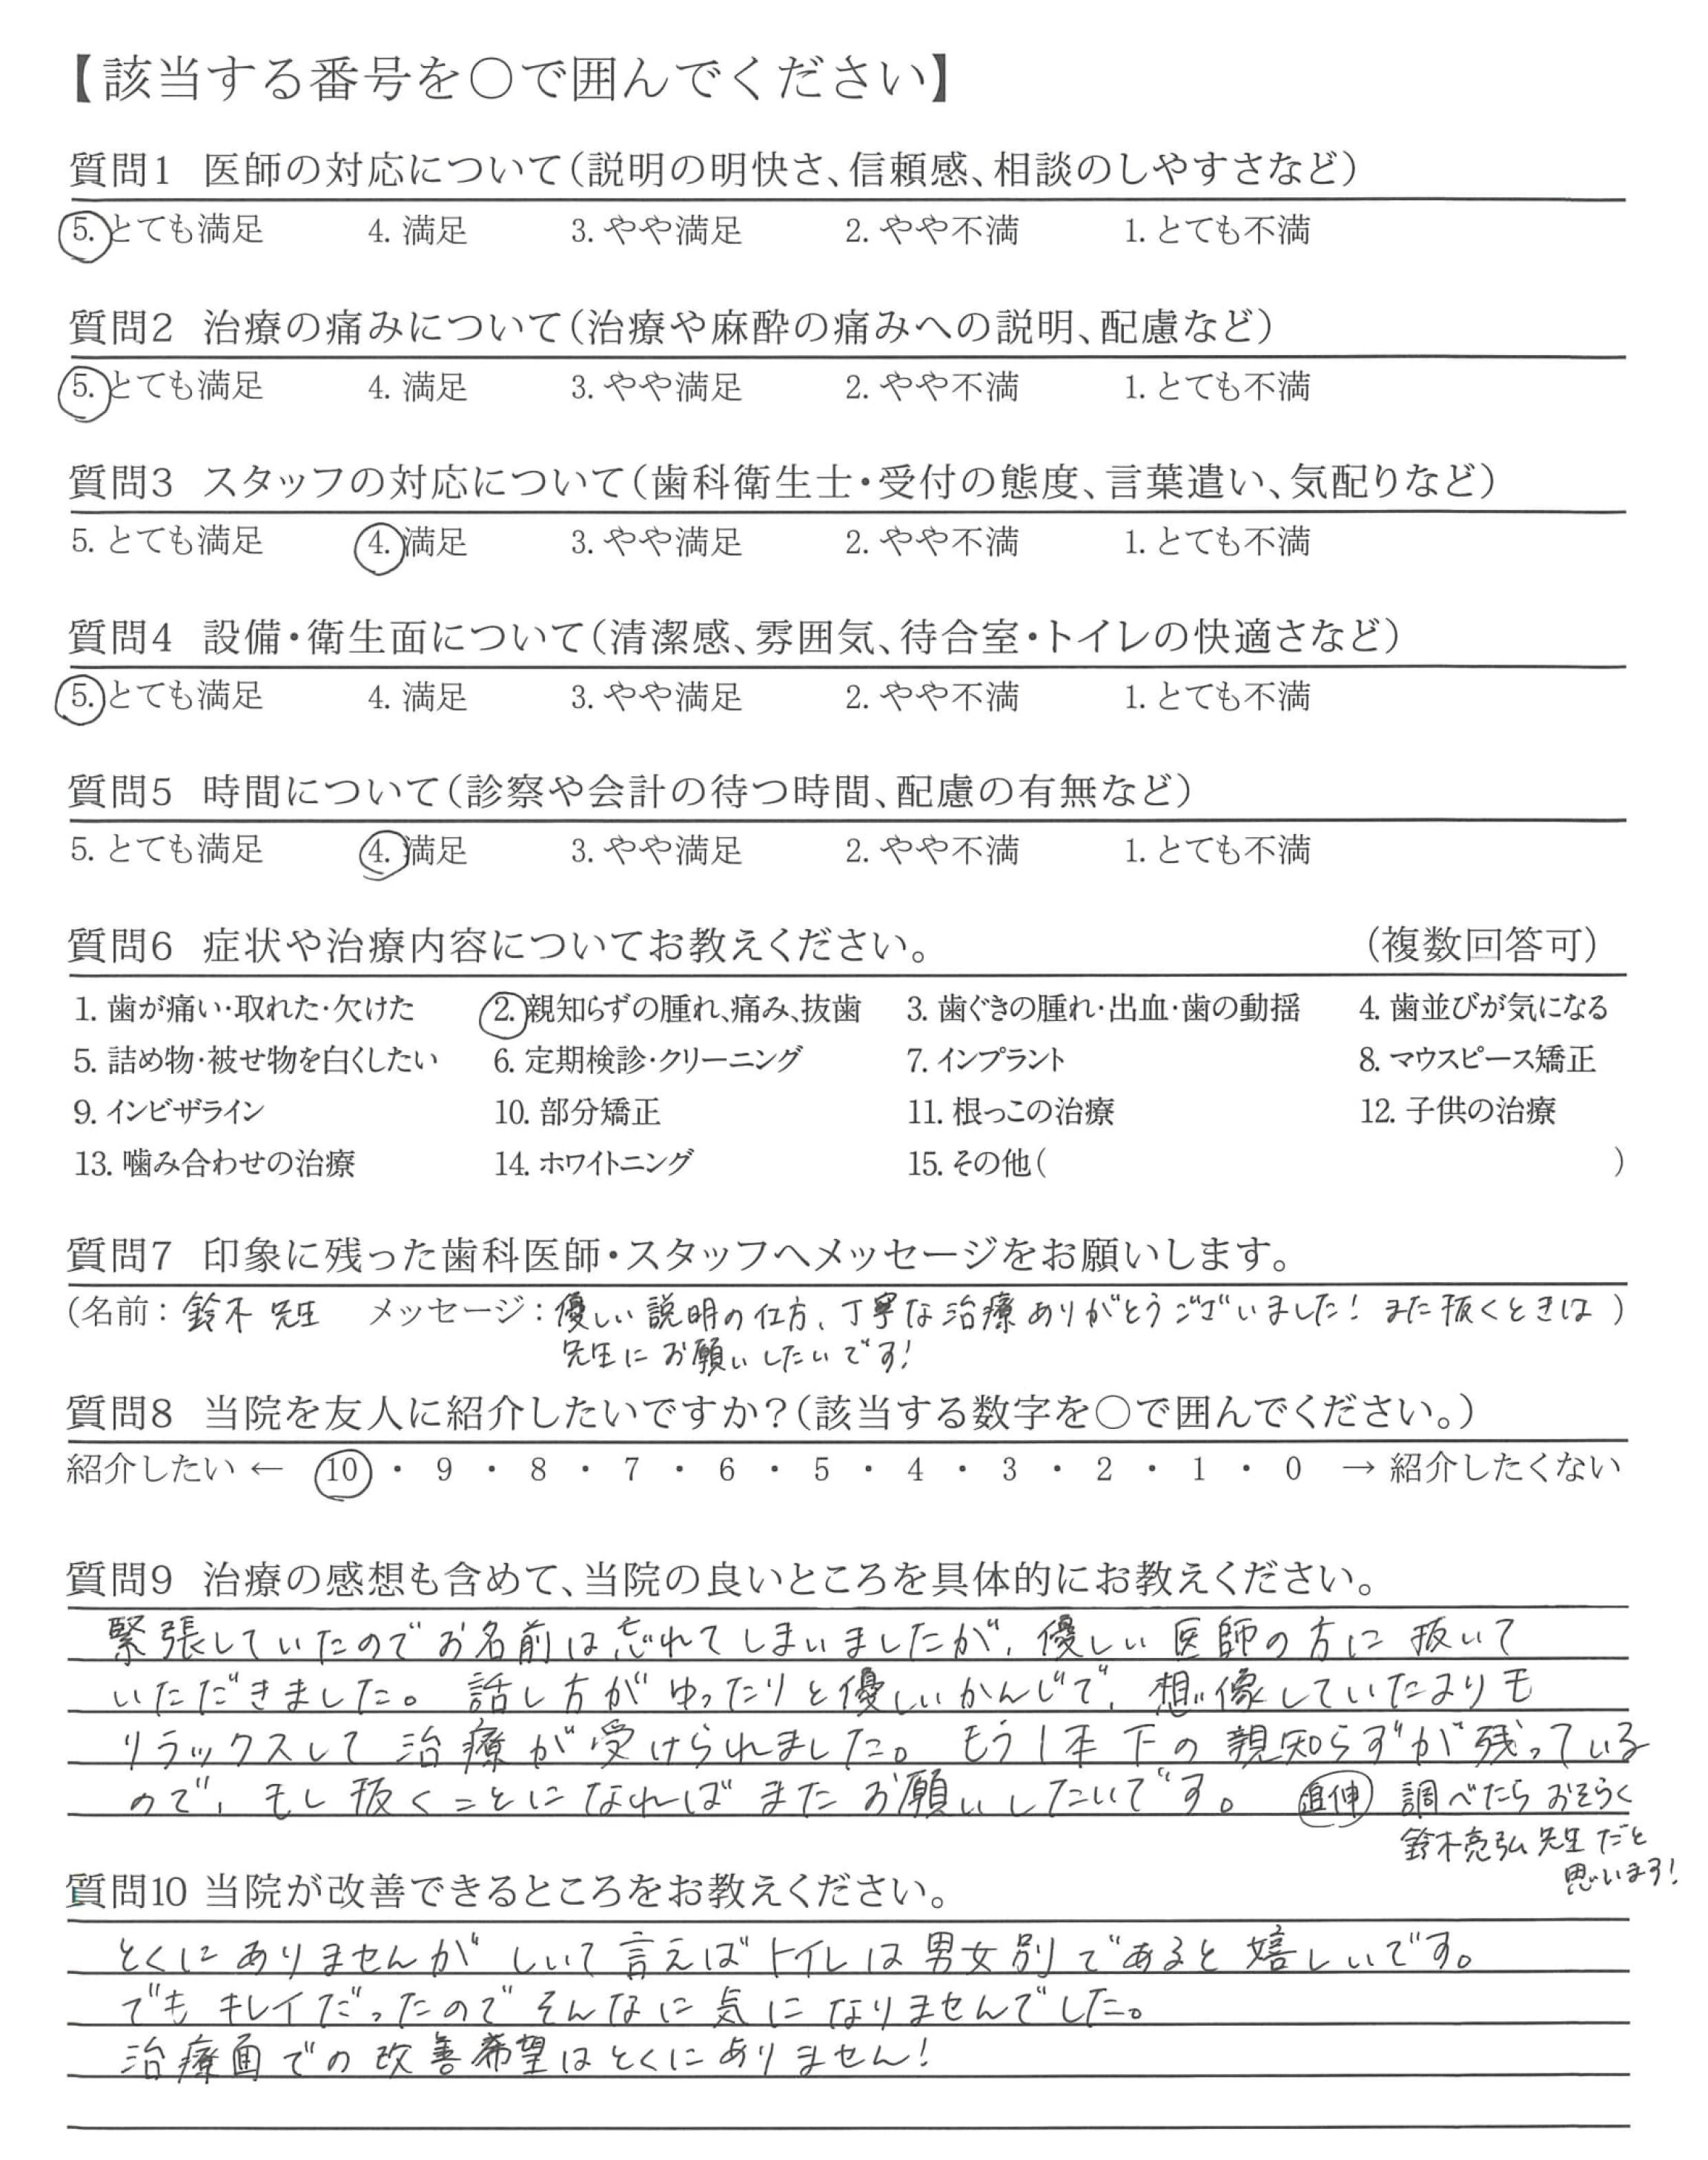 【該当する番号を○で囲んでください】
質問1 医師の対応について(説明の明快さ、信頼感、相談のしやすさなど)
5. とても満足 4. 満足 3. やや満足 2. やや不満 1. とても不満
質問2 治療の痛みについて(治療や麻酔の痛みへの説明、配慮など)
5. とても満足 4. 満足 3. やや満足 2. やや不満 1. とても不満
質問3 スタッフの対応について(歯科衛生士・受付の態度、言葉遣い、気配りなど)
5. とても満足 4. 満足 3. やや満足 2. やや不満 1. とても不満
質問4 設備・衛生面について(清潔感、雰囲気、待合室・トイレの快適さなど)
5. とても満足 4. 満足 3. やや満足 2. やや不満 1. とても不満
質問5 時間について(診察や会計の待つ時間、配慮の有無など)
5. とても満足 4. 満足 3. やや満足 2. やや不満 1. とても不満
質問6 症状や治療内容についてお教えください。 (複数回答可)
1. 歯が痛い・取れた・欠けた 2. 親知らずの腫れ、痛み、抜歯 3. 歯ぐきの腫れ・出血・歯の動揺 4. 歯並びが気になる
5. 詰め物・被せ物を白くしたい 6. 定期検診・クリーニング 7. インプラント 8. マウスピース矯正
9. インビザライン 10. 部分矯正 11. 根っこの治療 12. 子供の治療
13. 噛み合わせの治療 14. ホワイトニング 15. その他( )
質問7 印象に残った歯科医師・スタッフへメッセージをお願いします。
(名前：鈴木 先生 メッセージ：優しい説明の仕方、丁寧な治療ありがとうございました！また抜くときは )
先生にお願いしたいです！
質問8 当院を友人に紹介したいですか？(該当する数字を○で囲んでください。)
紹介したい ← 10 ・ 9 ・ 8 ・ 7 ・ 6 ・ 5 ・ 4 ・ 3 ・ 2 ・ 1 ・ 0 → 紹介したくない
質問9 治療の感想も含めて、当院の良いところを具体的にお教えください。
緊張していたのでお名前は忘れてしまいましたが、優しい医師の方に抜いて
いただきました。話し方がゆったりと優しいかんじで、想像していたよりも
リラックスして治療が受けられました。もう1本下の親知らずが残っている
ので、もし抜くことになればまたお願いしたいです。 追伸 調べたらおそらく
鈴木亮弘先生だと
思います！
質問10 当院が改善できるところをお教えください。
とくにありませんがしいて言えばトイレは男女別であると嬉しいです。
でもキレイだったのでそんなに気になりませんでした。
治療面での改善希望はとくにありません！